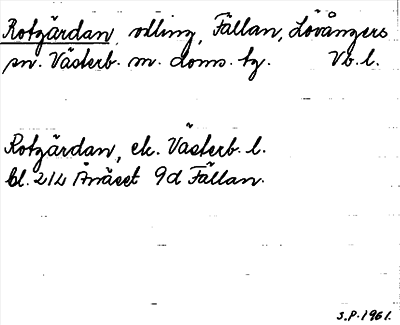 Rotgärdan, odling, Fällan, Lövångers
sn. Västerb. m. doms. tg. Vb. l.
Rotgärdan, ek. Västerb. l.
bl. 212 Ånäset 9d Fällan.
S.P. 1961.